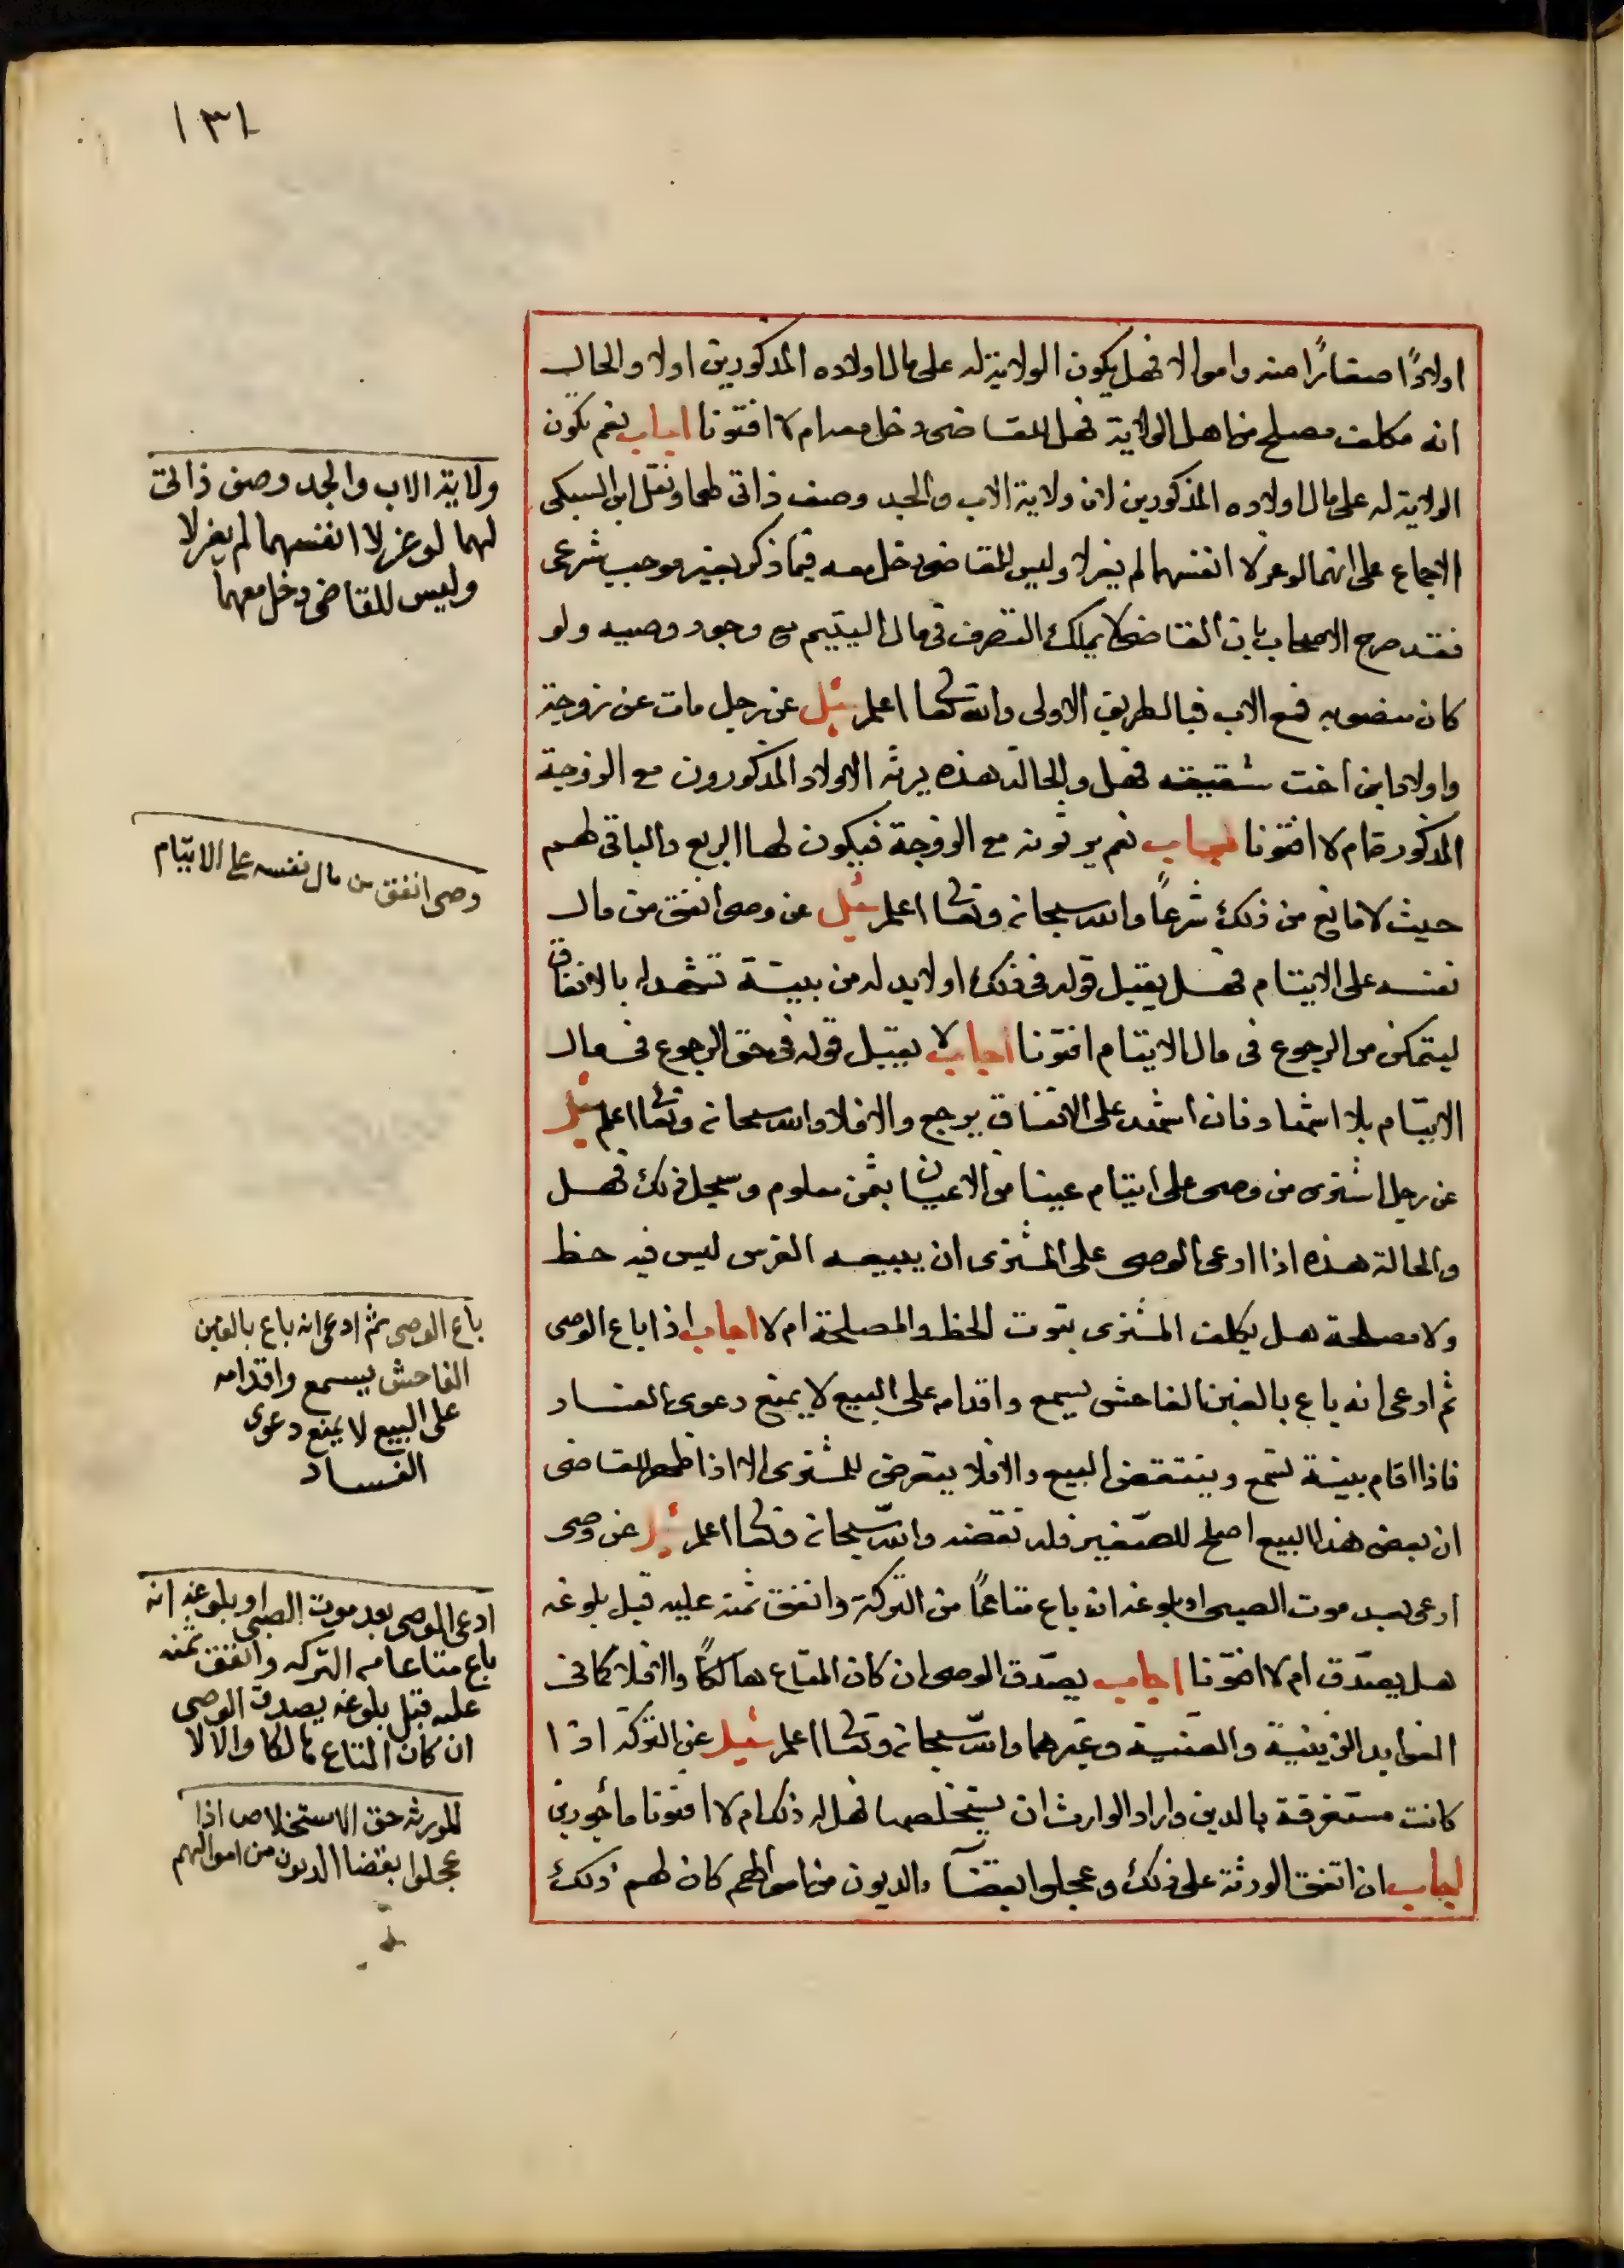 ١٣١
اولادًا صغارًا منه واموالا فهل يكون الولاية له على مال اولاده المذكورين اولا والحال
انه مكلف مصلح من اهل الولاية فهل للقاضى دخل معه ام لا افتونا اجاب نعم تكون
الولاية له على مال اولاده المذكورين لان ولاية الاب والجد وصف ذاتى لهما ونقل ابن السبكى
الاجماع على انهما لو عزلا انفسهما لم ينعزلا وليس للقاضى دخل معه فيما ذكر بغير موجب شرعى
فقد صرح الاصحاب بان القاضى لا يملك التصرف فى مال اليتيم مع وجود وصيه ولو
كان منصوبه فمع الاب فبالطريق الاولى والله تعالى اعلم سئل عن رجل مات عن زوجة
واولاد ابن اخت شقيقته فهل والحالة هذه يرثه الاولاد المذكورون مع الزوجة
المذكورة ام لا افتونا اجاب نعم يرثونه مع الزوجة فيكون لها الربع والباقى لهم
حيث لا مانع من ذلك شرعاً والله سبحانه وتعالى اعلم سئل عن وصى انفق من مال
نفسه على الايتام فهل يقبل قوله فى ذلك او لابد له من بينة تشهد له بالانفاق
ليتمكن من الرجوع فى مال الايتام افتونا اجاب لا يقبل قوله فى حق الرجوع فى مال
الايتام بلا اشهاد فان اشهد على الانفاق يرجع والا فلا والله سبحانه وتعالى اعلم سئل
عن رجل اشترى من وصى على ايتام عينا من الاعيان بثمن معلوم وسجل ذلك فهل
والحالة هذه اذا ادعى الوصى على المشترى ان يبيعه الغرس ليس فيه حظ
ولا مصلحة هل يكلف المشترى ثبوت الحظ والمصلحة ام لا اجاب اذا باع الوصى
ثم ادعى انه باع بالغبن الفاحش يسمع واقدامه على البيع لا يمنع دعوى الفساد
فاذا اقام بينة تسمع وينتقض البيع والا فلا يتعرض للمشترى الا اذا ظهر للقاضى
ان بعض هذا البيع اصلح للصغير فله نقضه والله سبحانه وتعالى اعلم سئل عن وصى
ادعى بعد موت الصبى او بلوغه انه باع متاعًا من التركة وانفق ثمنه عليه قبل بلوغه
هل يصدّق ام لا افتونا اجاب يصدّق الوصى ان كان المتاع هالكًا والا فلا كما فى
الفوايد الزينية والقنية وغيرهما والله سبحانه وتعالى اعلم سئل عن التركة اذا
كانت مستغرقة بالدين واراد الوارث ان يستخلصها فهل له ذلك ام لا افتونا مأجورين
اجاب ان اتفق الورثة على ذلك وعجلوا بقضاء الديون من اموالهم كان لهم ذلك
ولاية الاب والجد وصف ذاتى
لهما لو عزلا انفسهما لم ينعزلا
وليس للقاضى دخل معهما
وصى انفق من مال نفسه على الايتام
باع الوصى ثم ادعى انه باع بالغبن
الفاحش يسمع واقدامه
على البيع لا يمنع دعوى
الفساد
ادعى الوصى بعد موت الصبى او بلوغه انه
باع متاعا من التركه وانفق ثمنه
عليه قبل بلوغه يصدق الوصى
ان كان المتاع هالكا والا لا
للورثه حق الاستخلاص اذا
عجلوا بقضا الديون من اموالهم